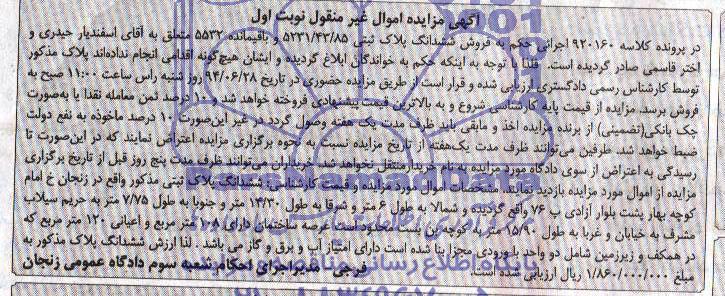 آگهی مزایده اموال غیر منقول نوبت اول
در پرونده کلاسه ۹۲۰۱۶۰ اجرائی حکم به فروش ششدانگ پلاک ثبتی ۵۲۳۱/۴۳/۸۵ و باقیمانده ۵۵۳۲ متعلق به آقای اسفندیار حیدری و
اختر قاسمی صادر گردیده است. فلذا با توجه به اینکه حکم به خواندگان ابلاغ گردیده و ایشان هیچ گونه اقدامی انجام نداده‌اند پلاک مذکور
توسط کارشناس رسمی دادگستری ارزیابی شده و قرار است از طریق مزایده حضوری در تاریخ ۹۴/۰۶/۲۸ روز شنبه راس ساعت ۱۱:۰۰ صبح به
فروش برسد. مزایده از قیمت پایه کارشناسی شروع و به بالاترین قیمت پیشنهادی فروخته خواهد شد و ۱۰ درصد ثمن معامله نقدا یا به‌صورت
چک بانکی(تضمینی) از برنده مزایده اخذ و مابقی باید ظرف مدت یک هفته وصول گردد در غیر این‌صورت ۱۰ درصد ماخوذه به نفع دولت
ضبط خواهد شد. طرفین می‌توانند ظرف مدت یک‌هفته از تاریخ مزایده نسبت به نحوه برگزاری مزایده اعتراض نمایند که در این‌صورت تا
رسیدگی به اعتراض از سوی دادگاه مورد مزایده به نام خریدار منتقل نخواهد شد. خریداران می‌توانند ظرف مدت پنج روز قبل از تاریخ برگزاری
مزایده از اموال مورد مزایده بازدید نمایند. مشخصات اموال مورد مزایده و قیمت کارشناسی: ششدانگ پلاک ثبتی مذکور واقع در زنجان خ امام
کوچه بهار پشت بلوار آزادی پ ۷۶ واقع گردیده و شمالا به طول ۶ متر و شرقا به طول ۱۴/۳۰ متر و جنوبا به طول ۷/۷۵ متر به حریم سیلاب
مشرف به خیابان و غربا به طول ۱۵/۹۰ متر به کوچه بن بست محدود است عرصه ساختمان دارای ۱۰۸ متر مربع و اعیانی ۱۲۰ متر مربع که
در همکف و زیرزمین شامل دو واحد با ورودی مجزا بنا شده است دارای امتیاز آب و برق و گاز می باشد . لذا ارزش ششدانگ پلاک مذکور به
مبلغ ۱/۸۶۰/۰۰۰/۰۰۰ ریال ارزیابی شده است.
فرجی مدیر اجرای احکام شعبه سوم دادگاه عمومی زنجان